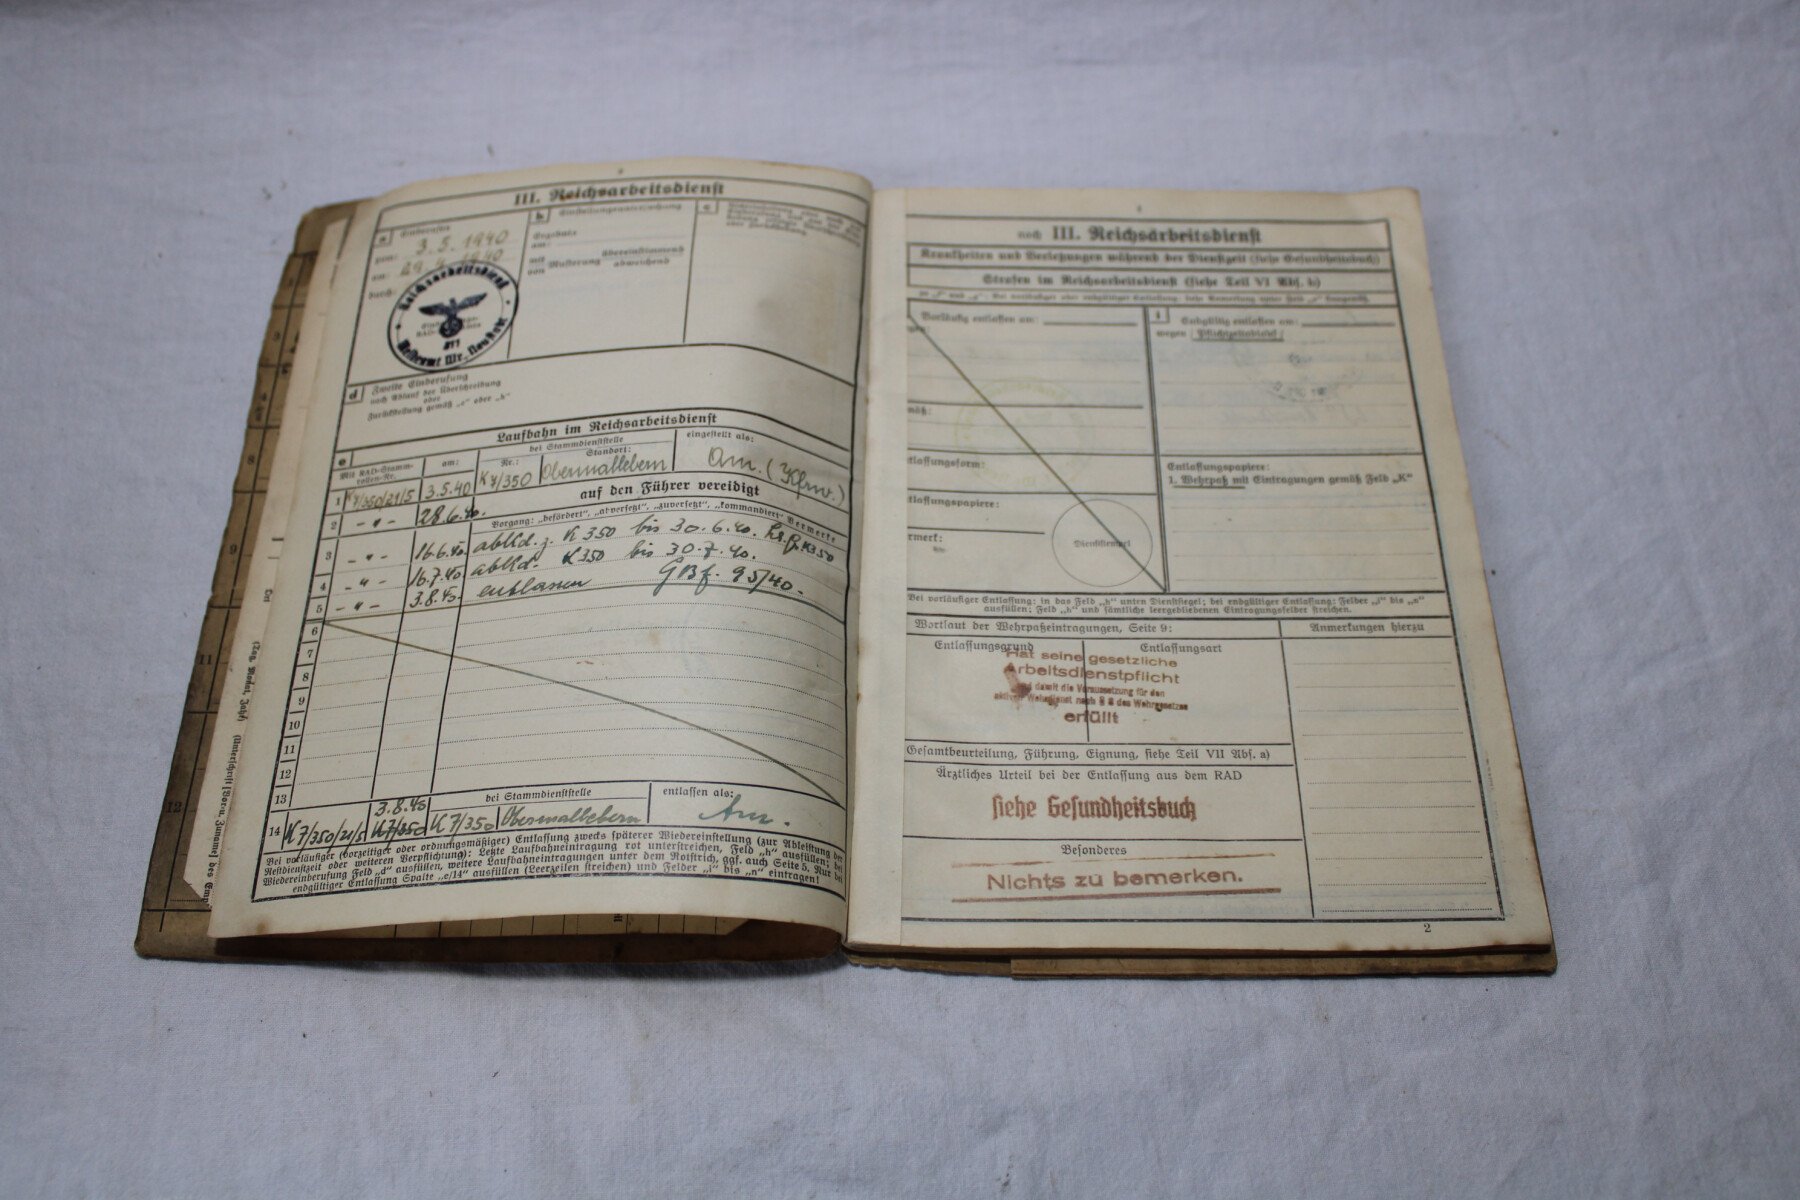 III. Reichsarbeitsdienst
a Einberufen
zum: 3.5.1940
am: 29.4.1940
durch:
Reichsarbeitsdienst
Meldeamt Wr. Neustadt
b Einstellungsuntersuchung
Ergebnis
am:
mit Musterung übereinstimmend
von abweichend
c
d Zweite Einberufung
nach Ablauf der Überschreibung
oder
Zurückstellung gemäß „c“ oder „b“
Laufbahn im Reichsarbeitsdienst
e Mit RAD-Stamm-
rollen-Nr.
am:
bei Stammdienststelle
Nr.: Standort:
eingestellt als:
1 K7/350/21/5 3.5.40 K7/350 Obermallebern Am. (Kfm.)
2 - " - 28.6.40. auf den Führer vereidigt
Vorgang: „befördert“, „abversetzt“, „zuversetzt“, „kommandiert“ Vermerke
3 - " - 16.6.40. abkd. z. K 350 bis 30.6.40.
4 - " - 16.7.40 abkd. K350 bis 30.7.40.
5 - " - 3.8.40. entlassen GBf. 95/40.
6
7
8
9
10
11
12
13
bei Stammdienststelle entlassen als:
14 K7/350/21/5 3.8.40 K7/350 K7/350 Obermallebern Am.
Bei vorläufiger (vorzeitiger oder ordnungsmäßiger) Entlassung zwecks späterer Wiedereinstellung (zur Ableistung der
Restdienstzeit oder weiteren Verpflichtung): Letzte Laufbahneintragung rot unterstreichen, Feld „h“ ausfüllen; bei
Wiedereinberufung Feld „d“ ausfüllen, weitere Laufbahneintragungen unter dem Rotstrich, ggf. auch Seite 5. Nur bei
endgültiger Entlassung Spalte „e/14“ ausfüllen (Leerzeilen streichen) und Felder „i“ bis „n“ eintragen!
noch III. Reichsarbeitsdienst
Krankheiten und Verletzungen während der Dienstzeit (siehe Gesundheitsbuch)
Strafen im Reichsarbeitsdienst (siehe Teil VI Abs. b)
Vorläufig entlassen am:
i Endgültig entlassen am:
wegen Pflichtzeitablauf
Entlassungspapiere:
1. Wehrpaß mit Eintragungen gemäß Feld „K“
Dienststempel
Bei vorläufiger Entlassung: in das Feld „h“ unten Dienstsiegel; bei endgültiger Entlassung: Felder „i“ bis „n“
ausfüllen; Feld „h“ und sämtliche leergebliebenen Eintragungsfelder streichen.
Wortlaut der Wehrpaßeintragungen, Seite 9: Anmerkungen hierzu
Entlassungsgrund Entlassungsart
Hat seine gesetzliche
Arbeitsdienstpflicht
und damit die Voraussetzung für den
aktiven Wehrdienst nach § 8 des Wehrgesetzes
erfüllt
Gesamtbeurteilung, Führung, Eignung, siehe Teil VII Abs. a)
Ärztliches Urteil bei der Entlassung aus dem RAD
siehe Gesundheitsbuch
Besonderes
Nichts zu bemerken.
2